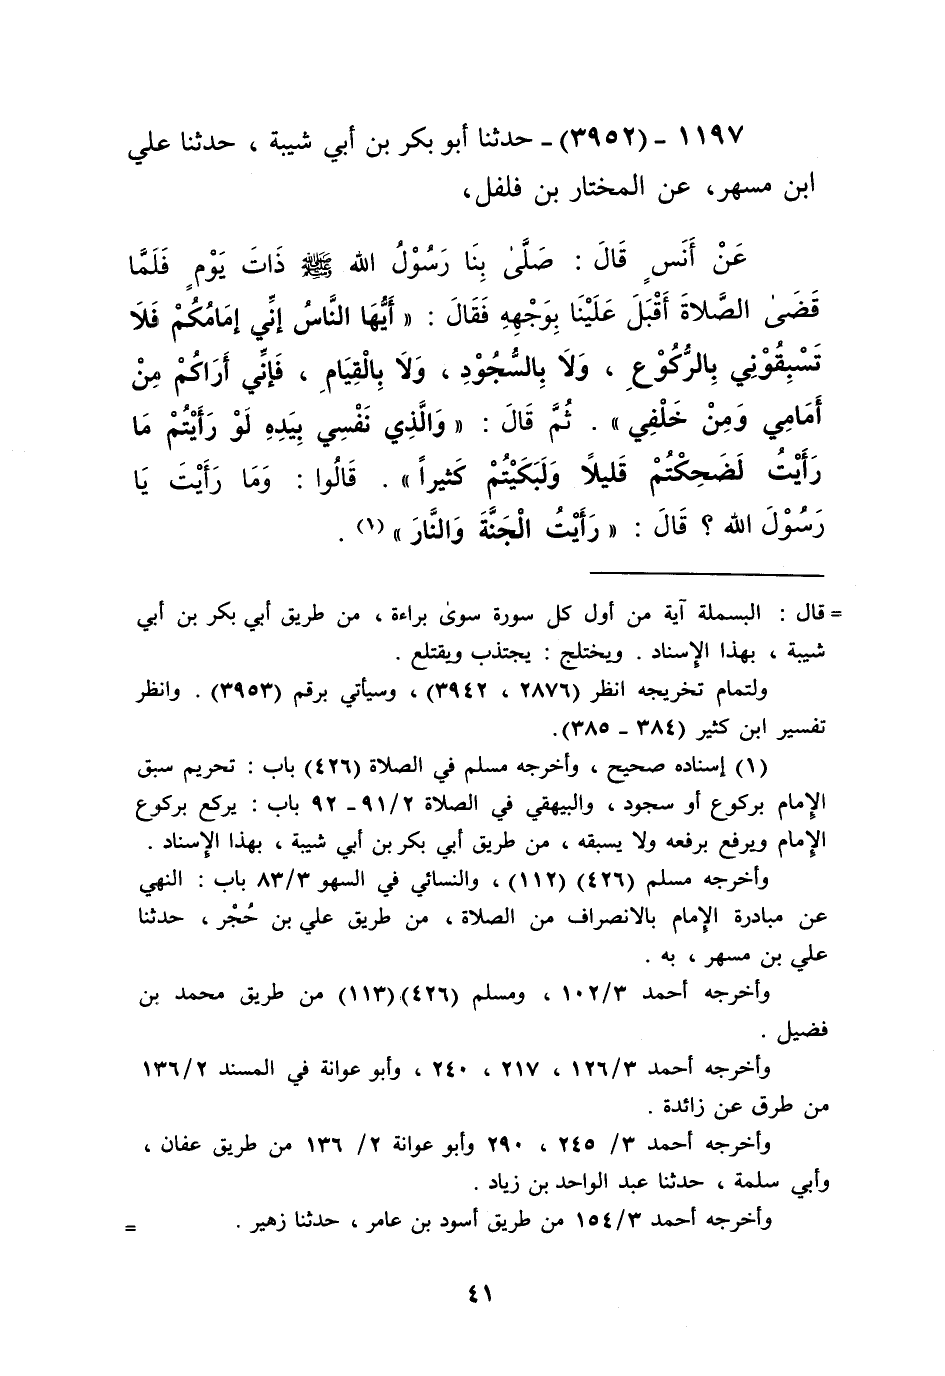 ١١٩٧ - (٣٩٥٢) - حدثنا أبو بكر بن أبي شيبة ، حدثنا علي
ابن مسهر، عن المختار بن فلفل،
عَنْ أَنَسٍ قَالَ : صَلَّىٰ بِنَا رَسُوْلُ الله ﷺ ذَاتَ يَوْمٍ فَلَمَّا
قَضَىٰ الصَّلاةَ أَقْبَلَ عَلَيْنَا بِوَجْهِهِ فَقَالَ : « أَيُّهَا النَّاسُ إنِّي إمَامُكُمْ فَلَا
تَسْبِقُوْنِي بِالرُّكُوْعِ ، وَلَا بِالسُّجُوْدِ ، وَلَا بِالْقِيَامِ ، فَإنِّي أَرَاكُمْ مِنْ
أَمَامِي وَمِنْ خَلْفِي » . ثُمَّ قَالَ : « وَالَّذِي نَفْسِي بِيَدِهِ لَوْ رَأَيْتُمْ مَا
رَأَيْتُ لَضَحِكْتُمْ قَلِيلاً وَلَبَكَيْتُمْ كَثيراً » . قَالُوا : وَمَا رَأَيْتَ يَا
رَسُوْلَ الله ؟ قَالَ : « رَأَيْتُ الْجَنَّةَ وَالنَّارَ » (١) .
= قال : البسملة آية من أول كل سورة سوىٰ براءة ، من طريق أبي بكر بن أبي
شيبة ، بهذا الإسناد . ويختلج : يجتذب ويقتلع .
ولتمام تخريجه انظر (٢٨٧٦ ، ٣٩٤٢) ، وسيأتي برقم (٣٩٥٣) . وانظر
تفسير ابن كثير (٣٨٤ - ٣٨٥).
(١) إسناده صحيح ، وأخرجه مسلم في الصلاة (٤٢٦) باب : تحريم سبق
الإمام بركوع أو سجود ، والبيهقي في الصلاة ٩١/٢ - ٩٢ باب : يركع بركوع
الإمام ويرفع برفعه ولا يسبقه ، من طريق أبي بكر بن أبي شيبة ، بهذا الإسناد .
وأخرجه مسلم (٤٢٦) (١١٢) ، والنسائي في السهو ٨٣/٣ باب : النهي
عن مبادرة الإمام بالانصراف من الصلاة ، من طريق علي بن حُجْر ، حدثنا
علي بن مسهر ، به .
وأخرجه أحمد ١٠٢/٣ ، ومسلم (٤٢٦) (١١٣) من طريق محمد بن
فضيل .
وأخرجه أحمد ١٢٦/٣ ، ٢١٧ ، ٢٤٠ ، وأبو عوانة في المسند ١٣٦/٢
من طرق عن زائدة .
وأخرجه أحمد ٣/ ٢٤٥ ، ٢٩٠ وأبو عوانة ٢/ ١٣٦ من طريق عفان ،
وأبي سلمة ، حدثنا عبد الواحد بن زياد .
وأخرجه أحمد ١٥٤/٣ من طريق أسود بن عامر ، حدثنا زهير . =
٤١